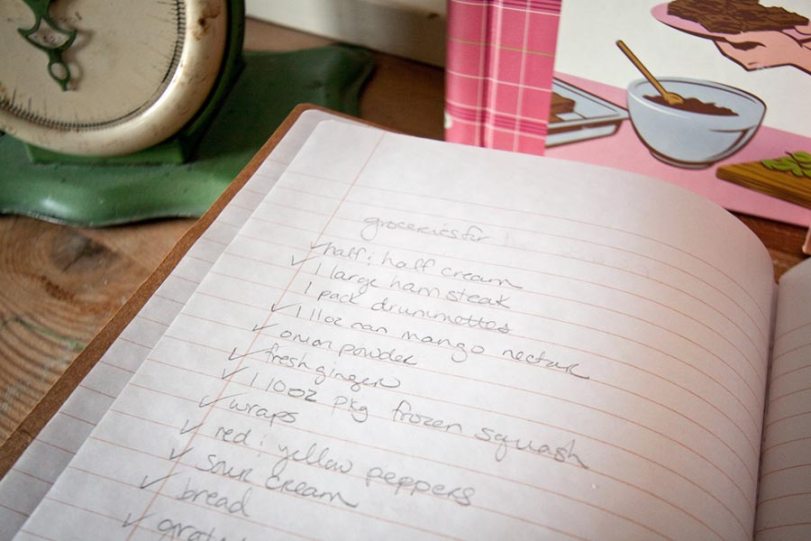 groceries for
✓ half: half cream
✓ 1 large ham steak
1 pack drummettes
✓ 1 11oz can mango nectar
✓ onion powder
✓ fresh ginger
✓ 1 10oz pkg frozen squash
✓ wraps
✓ red: yellow peppers
✓ sour cream
✓ bread
✓